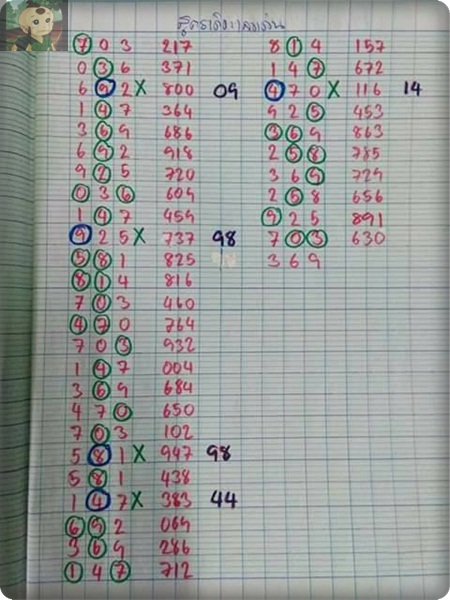 7 0 3 217
0 3 6 371
6 9 2 X 800 09
1 4 7 364
3 6 9 686
6 9 2 918
9 2 5 720
0 3 6 609
1 4 7 459
9 2 5 X 737 98
5 8 1 825
8 1 4 816
7 0 3 460
4 7 0 764
7 0 3 932
1 4 7 004
3 6 9 684
4 7 0 650
7 0 3 102
5 8 1 X 947 98
5 8 1 438
1 4 7 X 383 44
6 9 2 069
3 6 9 286
1 4 7 712
8 1 4 157
1 4 7 672
4 7 0 X 116 14
9 2 5 453
3 6 9 863
2 5 8 785
3 6 9 729
2 5 8 656
9 2 5 891
7 0 3 630
3 6 9